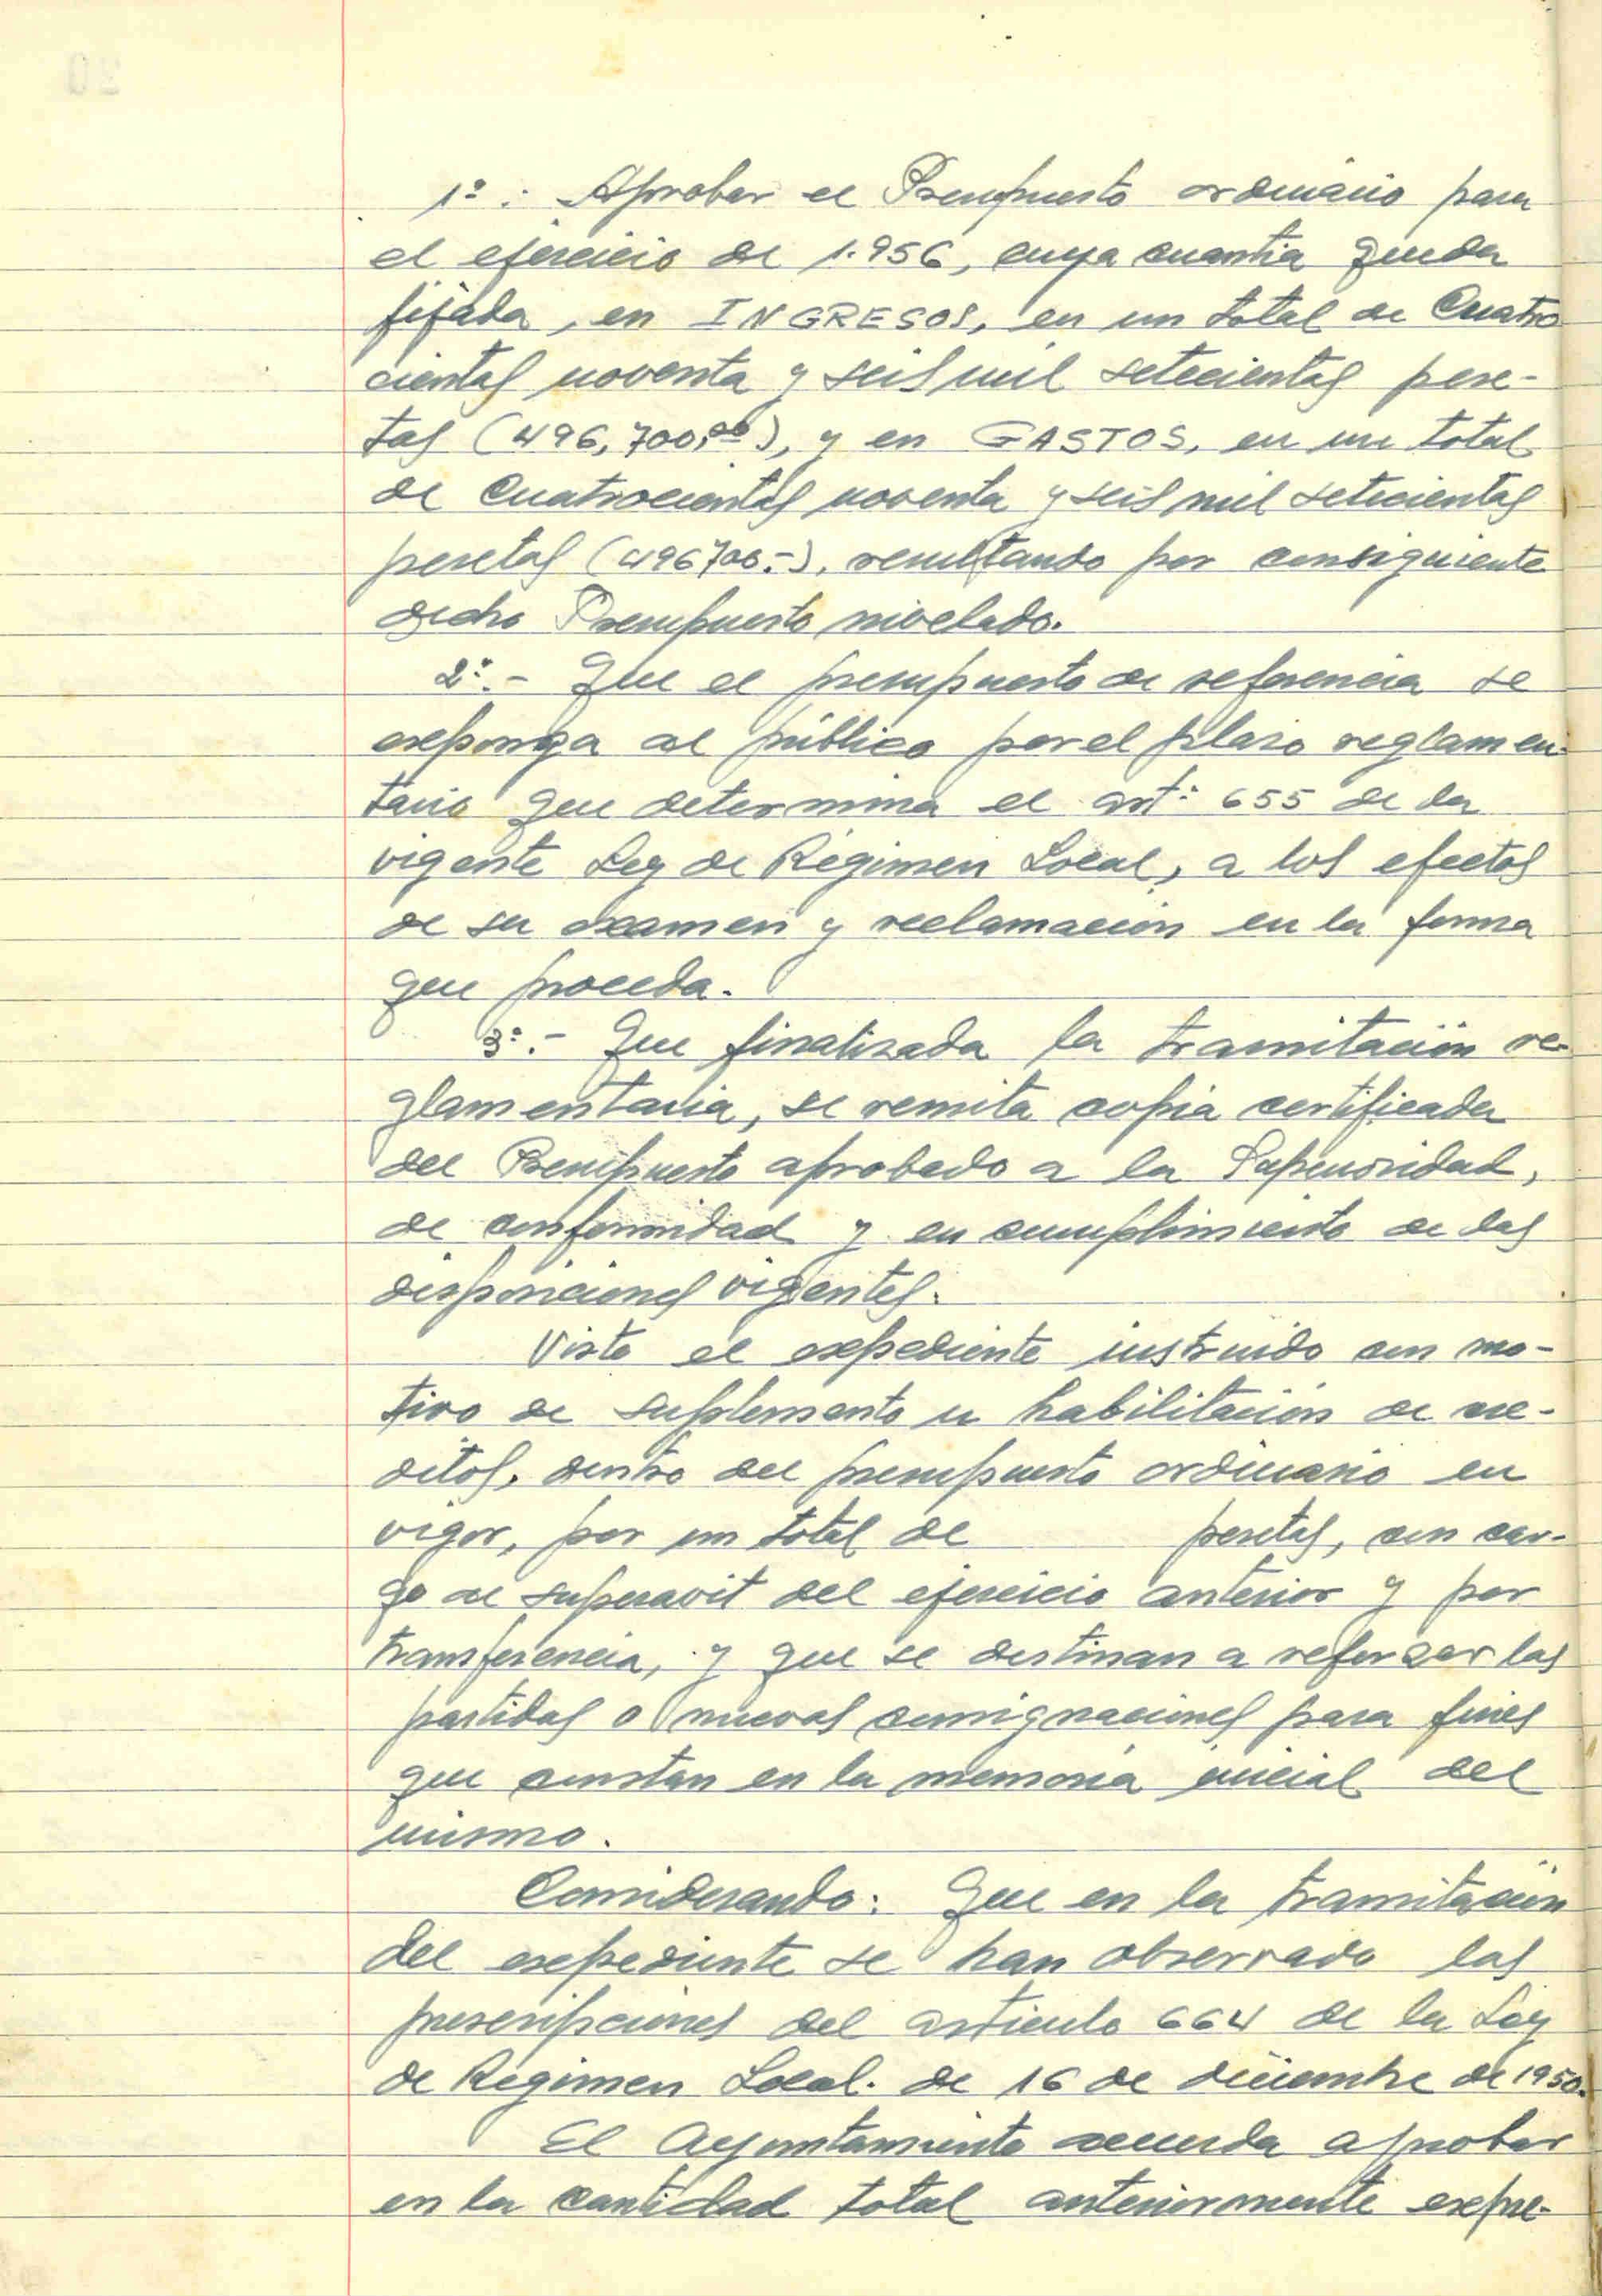 1º.: Aprobar el Presupuesto ordinario para
el ejercicio de 1.956, cuya cuantia queda
fijada, en INGRESOS, en un total de Cuatro
cientas noventa y seis mil setecientas pese-
tas (496,700,00), y en GASTOS, en un total
de Cuatrocientas noventa y seis mil setecientas
pesetas (496700.-), resultando por consiguiente
dicho Presupuesto nivelado.
2º.- Que el presupuesto de referencia se
exponga al público por el plazo reglamen-
tario que determina el artº 655 de la
vigente Ley de Régimen Local, a los efectos
de su examen y reclamación en la forma
que proceda.
3º.- Que finalizada la tramitación re-
glamentaria, se remita copia certificada
del Presupuesto aprobado a la Superioridad,
de conformidad y en cumplimiento de las
disposiciones vigentes.
Visto el expediente instruido con mo-
tivo de suplemento u habilitación de cre-
ditos, dentro del presupuesto ordinario en
vigor, por un total de pesetas, con car-
go al superavit del ejercicio anterior y por
transferencia, y que se destinan a reforzar las
partidas o nuevas consignaciones para fines
que constan en la memoria inicial del
mismo.
Considerando: Que en la tramitación
del expediente se han observado las
prescripciones del articulo 664 de la Ley
de Régimen Local. de 16 de diciembre de 1950.
El Ayuntamiento acuerda aprobar
en la cantidad total anteriormente expre-